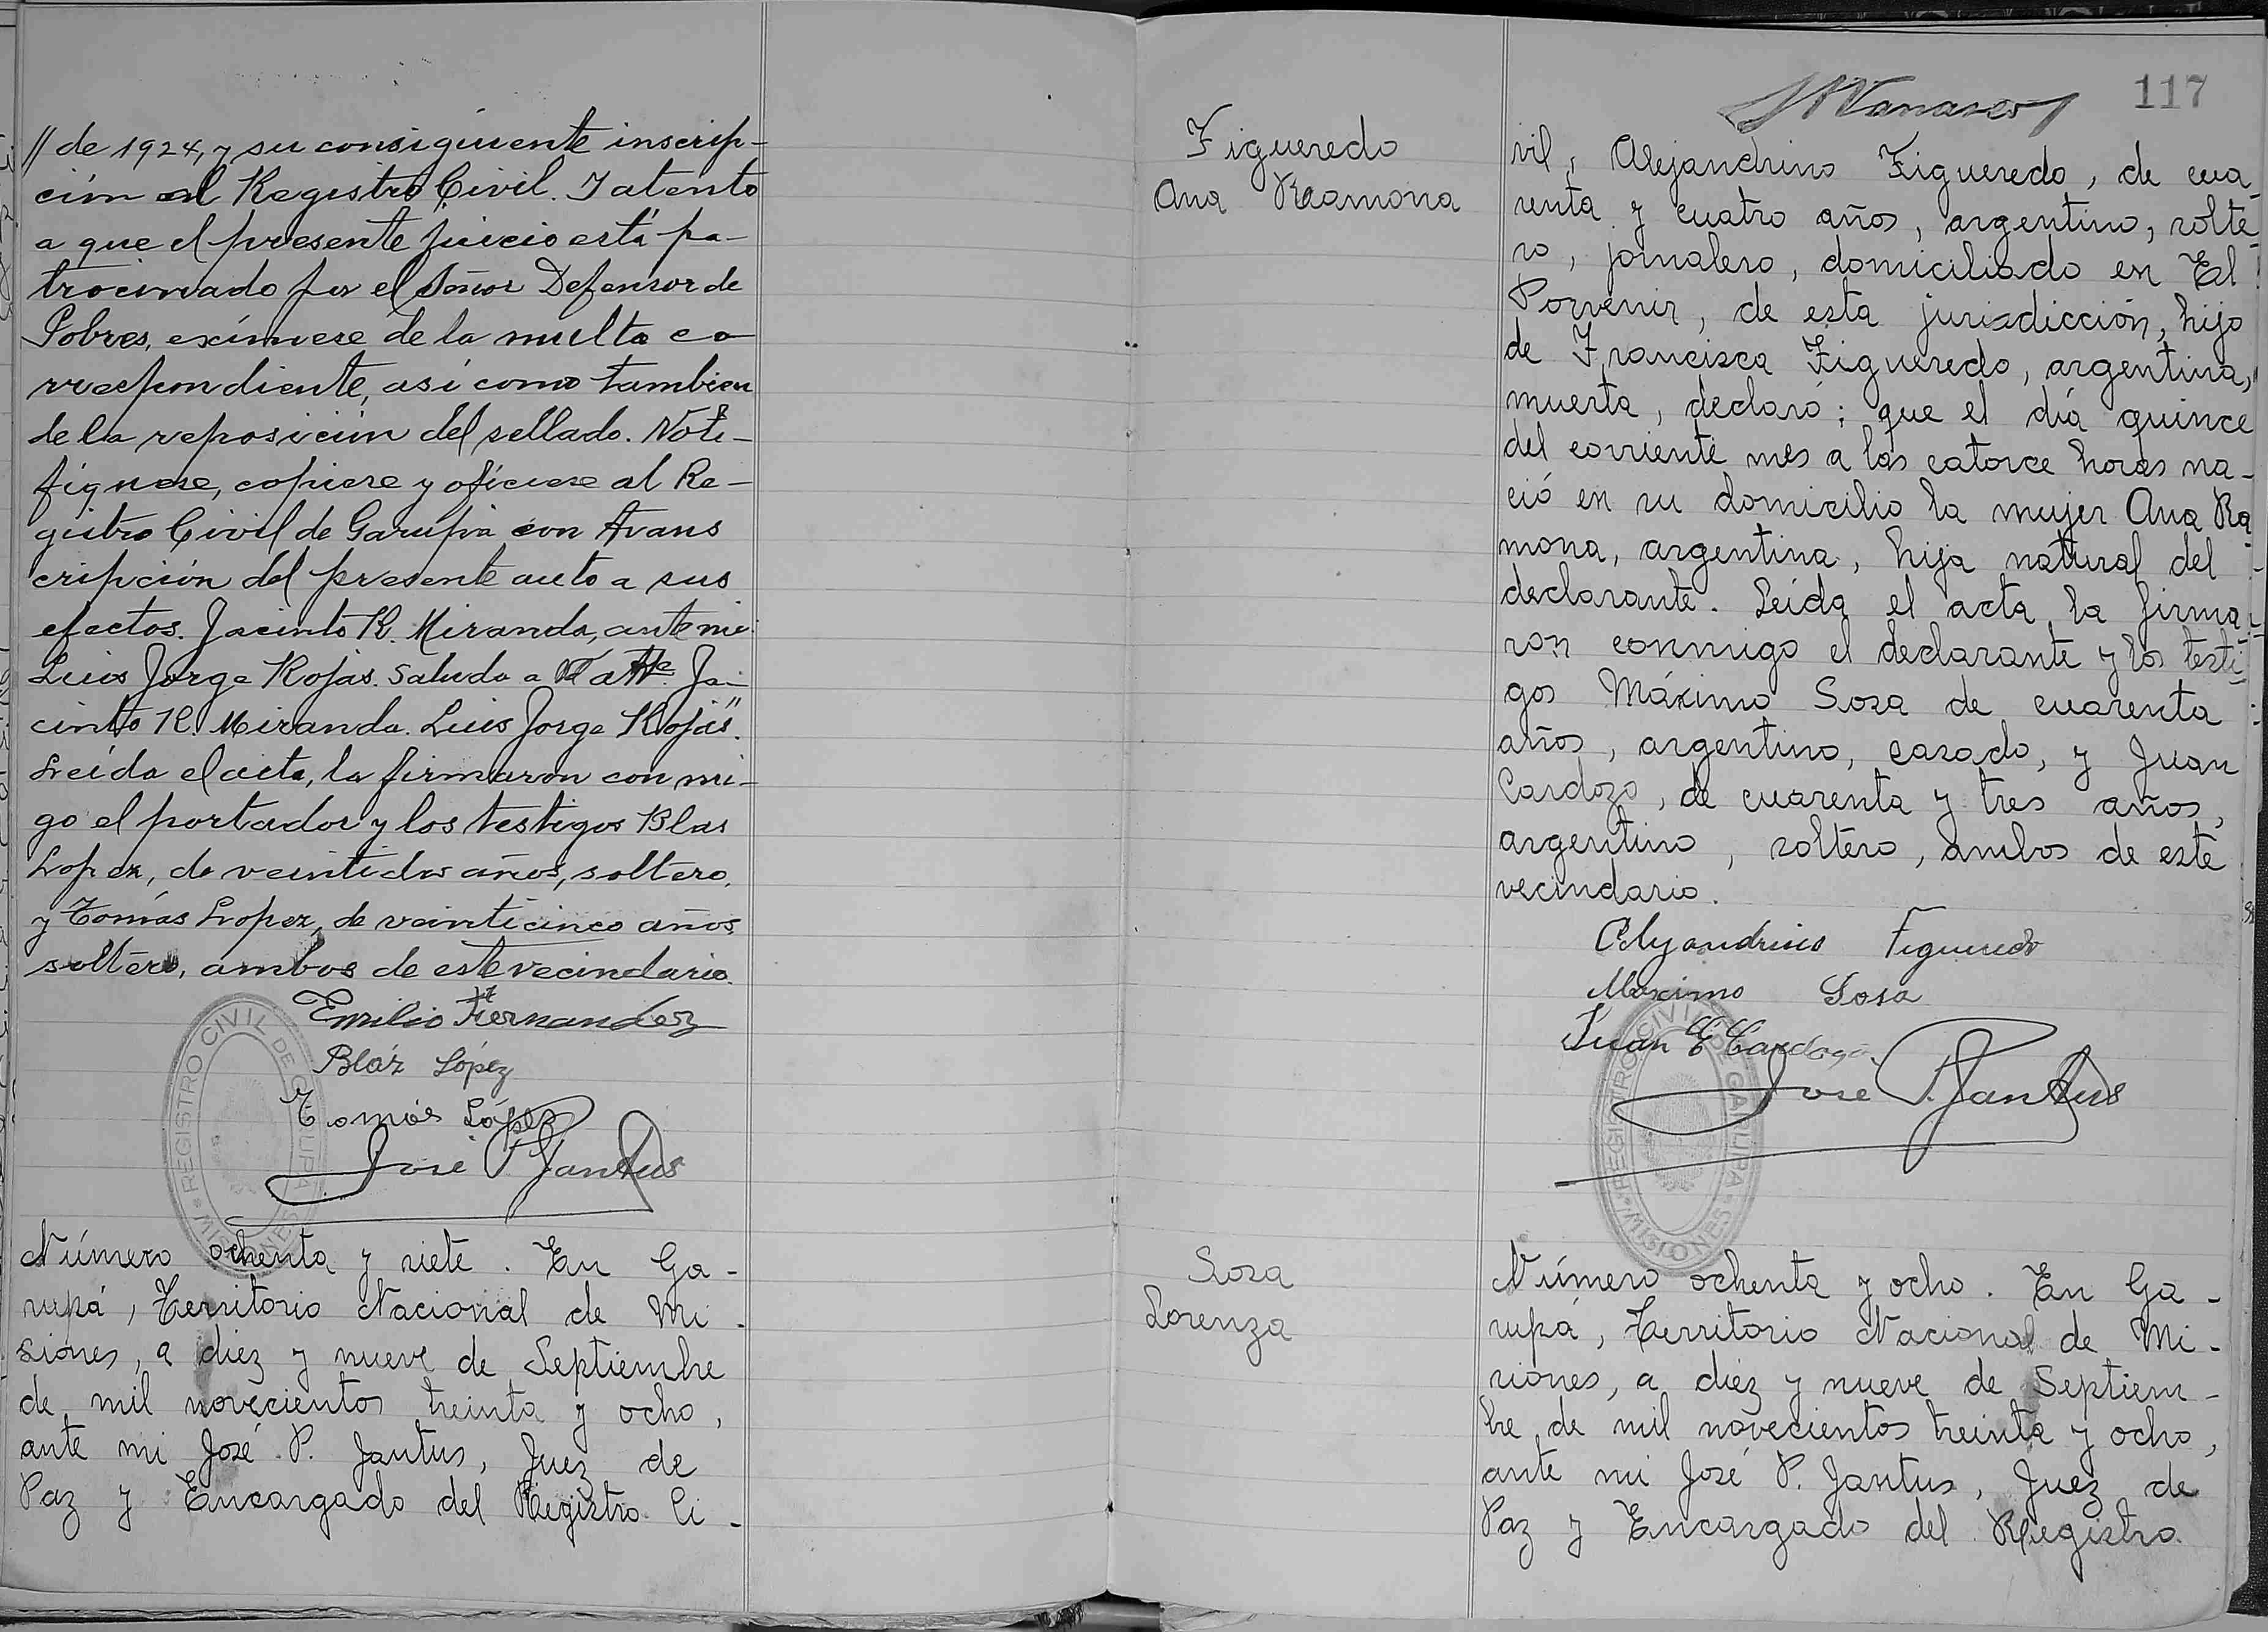 // de 1924, y su consiguiente inscrip-
ción en el Registro Civil. Y atento
a que el presente juicio está pa-
trocinado por el Señor Defensor de
Pobres, exímese de la multa co-
rrespondiente, así como tambien
de la reposición del sellado. Noti-
fíquese, copiese y ofíciese al Re-
gistro Civil de Garupá con trans
cripción del presente auto a sus
efectos. Jacinto R. Miranda, ante mi
Luis Jorge Rojas. Saluda a Atte. Ja-
cinto R. Miranda. Luis Jorge Rojas".
Leída el acta, la firmaron con mi-
go el portador y los testigos Blas
Lopez, de veintidos años, soltero,
y Tomás Lopez, de veinticinco años
soltero, ambos de este vecindario.
Emilio Fernandez
Bláz López
Tomás López
José P. Jantus
REGISTRO CIVIL DE GARUPA
MISIONES
Número ochenta y siete. En Ga-
rupá, Territorio Nacional de Mi-
siones, a diez y nueve de Septiembre
de mil novecientos treinta y ocho,
ante mi José P. Jantus, Juez de
Paz y Encargado del Registro Ci-
117
Figueredo
Ana Ramona
vil, Alejandrino Figueredo, de cua-
renta y cuatro años, argentino, solte-
ro, jornalero, domiciliado en El
Porvenir, de esta jurisdicción, hijo
de Francisca Figueredo, argentina,
muerta, declaró: que el día quince
del corriente mes a las catorce horas na-
ció en su domicilio la mujer Ana Ra-
mona, argentina, hija natural del
declarante. Leída el acta la firma-
ron conmigo el declarante y los testi-
gos Máximo Sosa de cuarenta
años, argentino, casado, y Juan
Cardozo, de cuarenta y tres años,
argentino, soltero, ambos de este
vecindario.
Alejandrino Figueredo
Maximo Sosa
Juan E Cardozo
José P. Jantus
REGISTRO CIVIL DE GARUPA
MISIONES
Sosa
Lorenza
Número ochenta y ocho. En Ga-
rupá, Territorio Nacional de Mi-
siones, a diez y nueve de Septiem-
bre de mil novecientos treinta y ocho,
ante mi José P. Jantus, Juez de
Paz y Encargado del Registro